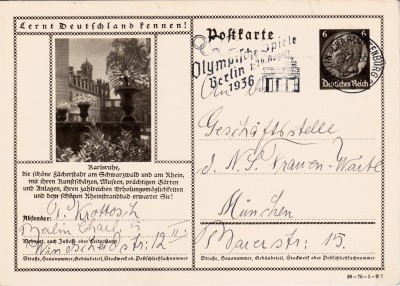 Lernt Deutschland kennen!
Karlsruhe,
die schöne Fächerstadt am Schwarzwald und am Rhein,
mit ihren Kunstschätzen, Museen, prächtigen Gärten
und Anlagen, ihren zahlreichen Erholungsmöglichkeiten
und dem schönen Rheinstrandbad erwartet Sie!
Absender:
Berlin Charl. 5
Wohnort, auch Zustell- oder Leitpostamt
Windscheidstr. 12 II
Straße, Hausnummer, Gebäudeteil, Stockwerk oder Postschließfachnummer
Postkarte
Olympische Spiele
Berlin 1.-16. August
1936
6 6
Deutsches Reich
An
Geschäftsstelle
d. N.S. Frauen-Warte
München
15.
Straße, Hausnummer, Gebäudeteil, Stockwerk oder Postschließfachnummer